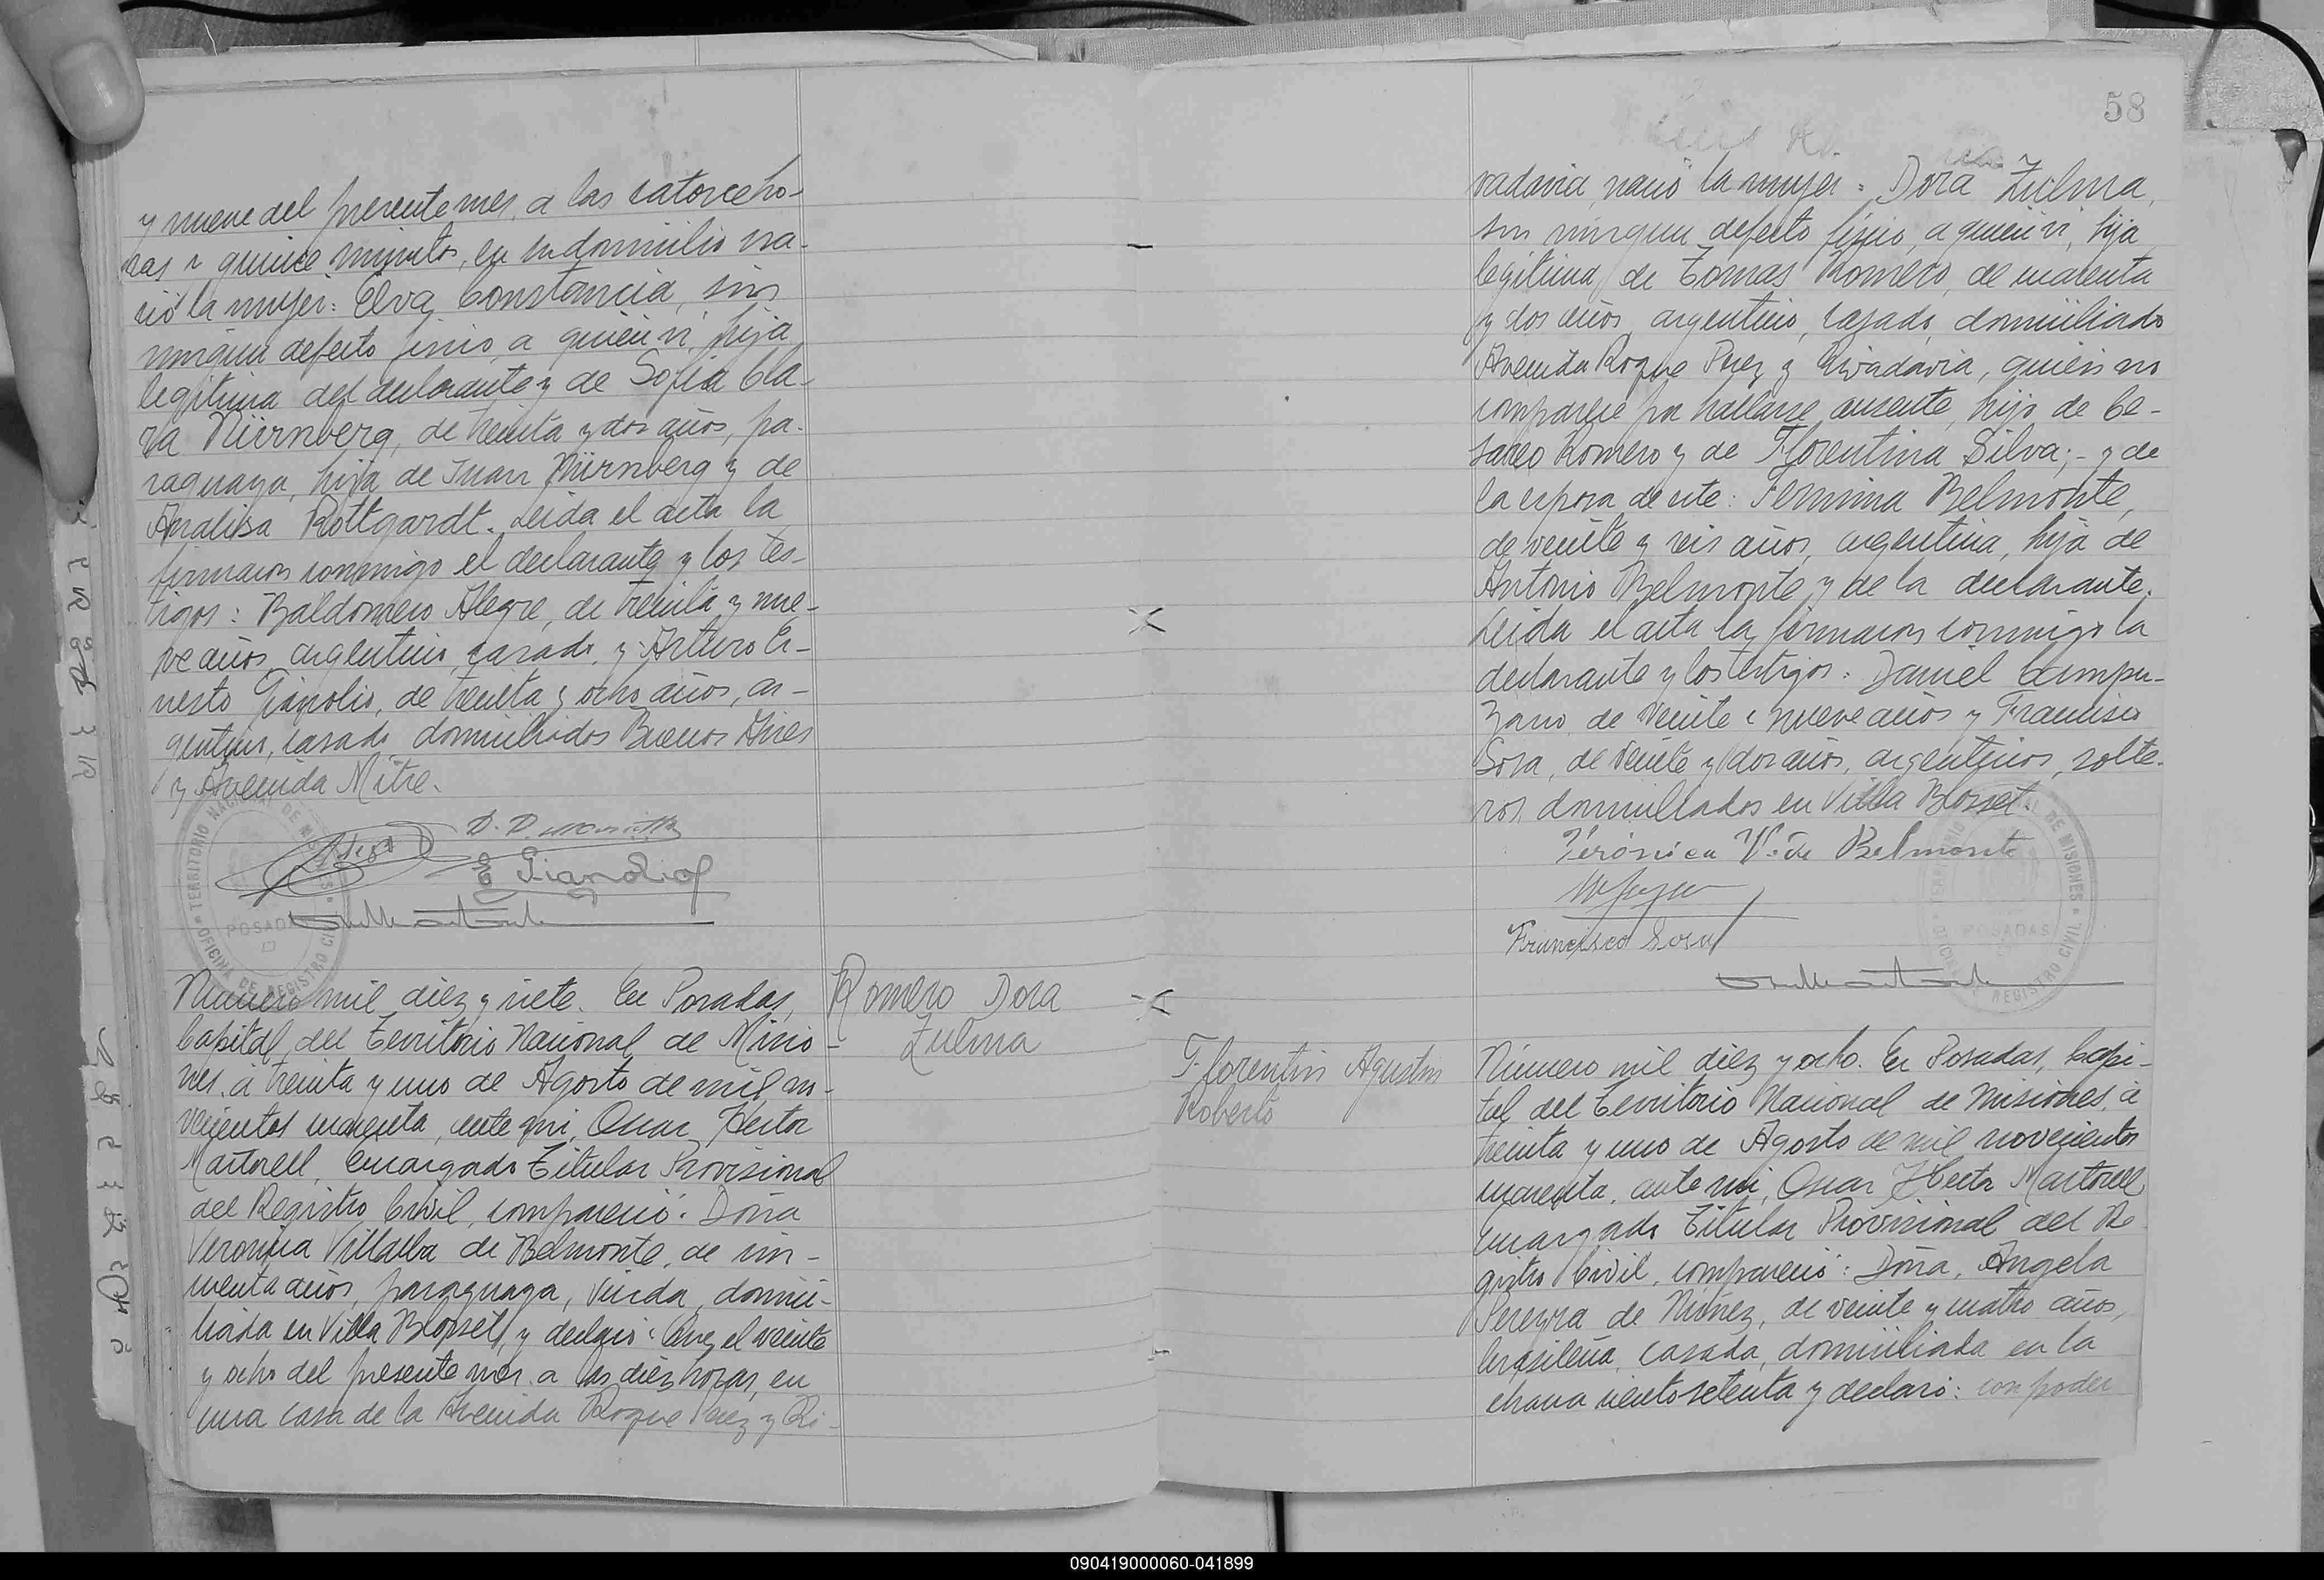 y nueve del presente mes, a las catorce ho-
ras y quince minutos, en su domicilio na-
ció la mujer: Elva Constancia, sin
ningun defecto fisico, a quién vi, hija
legitima del declarante y de Sofia Cla-
ra Nürnberg, de treinta y dos años, pa-
raguaya, hija de Juan Nürnberg y de
Analisa Rottgardt. Leida el acta la
firmaron conmigo el declarante y los tes-
tigos: Baldomero Alegre, de treinta y nue-
ve años, argentino, casado, y Arturo Er-
nesto Gianolio, de treinta y ocho años, ar-
gentino, casado, domiciliados Buenos Aires
y Avenida Mitre.
TERRITORIO NACIONAL DE MISIONES
POSADAS
OFICINA DE REGISTRO CIVIL
Número mil diez y siete. En Posadas,
Capital del Territorio Nacional de Misio-
nes, á treinta y uno de Agosto de mil no-
vecientos cuarenta, ante mi, Oscar Hector
Martorell, Encargado Titular Provisional
del Registro Civil, compareció: Doña
Veronica Villalba de Belmonte, de cin-
cuenta años, paraguaya, viuda, domici-
liada en Villa Blosset, y declaró: Que, el veinte
y ocho del presente mes, a las diez horas, en
una casa de la Avenida Roque Perez y Ri-
Romero Dora
Zulma
58
vadavia, nació la mujer: Dora Zulma,
sin ningun defecto fisico, a quién vi, hija
legitima de Tomas Romero, de cuarenta
y dos años, argentino, casado, domiciliado
Avenida Roque Perez y Rivadavia, quién no
comparece por hallarse ausente, hijo de Ce-
sareo Romero y de Florentina Silva;- y de
la esposa de este: Fermina Belmonte,
de veinte y seis años, argentina, hija de
Antonio Belmonte y de la declarante.
Leida el acta la firmaron conmigo la
declarante y los testigos: Daniel Campu-
zano, de veinte y nueve años y Francisco
Sosa, de veinte y dos años, argentinos, solte-
ros, domiciliados en Villa Blosset.
Verónica V. de Belmonte
Francisco Sosa
TERRITORIO NACIONAL DE MISIONES
POSADAS
OFICINA DE REGISTRO CIVIL
Florentin Agustin
Roberto
Número mil diez y ocho. En Posadas, Capi-
tal del Territorio Nacional de Misiones, á
treinta y uno de Agosto de mil novecientos
cuarenta, ante mi, Oscar Hector Martorell
Encargado Titular Provisional del Re-
gistro Civil, compareció: Doña, Angela
Pereyra de Núñez, de veinte y cuatro años,
brasileña, casada, domiciliada en la
chacra ciento setenta y declaró: con poder
090419000060-041899